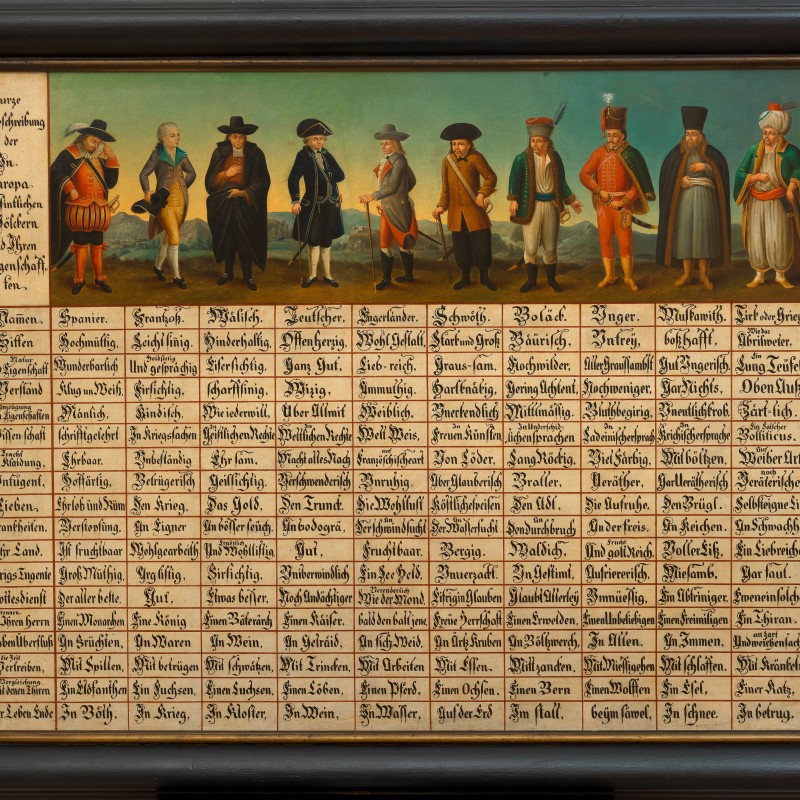 urze
eschreibung
der
In
uropa.
efintlichen
Völckern
nd Ihren
igenschaff,
ten.
Namen. Spanier. Frantzoß. Wälisch. Teutscher. Engerländer. Schwöth. Boläck. Unger. Muskawith. Tirk oder Grieg
Sitten Hochmüttig, Leicht sinig. Hinderhaltig. Offenherzig. Wohl Gestalt Stark und Groß Bäurisch. Untrey. boßhafft. Wie das Abrilweter.
Natur Eigenschaft Wunderbarlich Holdseelig Und gesprächig Eifersichtig. Ganz Gut. Lieb-reich. Graus-sam. Nochwilder. Aller Graussambst Gut Ungerisch. Ein Lung Teüfel
Verständ Klug un Weiß. Firsichtig. scharffsinig. Wizig. Anmuthig. Hartknäbig. Gering Achtent. Nochweniger. Gar Nichts. Oben Auß
Eigenschaften Mänlich. Kindisch. Wie iederwill. Über Allmit Weiblich. Unerkendlich Mittlmässig. Bluthbegirig. Unentlichkrob. Zärt-lich.
issenschaft schrifftgelehrt In Kriegsachen Geistlichen Rechte In Weltlichen Rechte Welt Weis. In Freuen Künsten In Underschid- lichen sprachen In Ladeinischersprach In Krichischersprache Ein Falscher Bolliticus.
Tracht Klaidung. Ehrbaar. Unbeständig Ehrsam. Macht alles Nach auf Französchischeart Von Löder. Lang Röckig. Viel Färbig. Mit böltzen. Auf Weiber Art
Untugent. Hoffärtig. Betrügerisch Geillsichtig. Verschwenderisch Unruhig. Über Glauberisch Braller. Veräther. Gar Verätherisch noch Veräterische
Lieben. Ehrlob und Rüm Den Krieg. Das Gold. Den Trunck. Die Wohllust Köstliche speisen Den Adl. Die Aufruhe. Den Brügl. Selbsteigne Li
rankheiten. Verstopfung. An Eigner An bösser seüch. An bodogrä. Der schwindsucht An Der Wassersucht An Den durchbruch An der freis. An Keichen. An Schwachh
hr Land. Ist fruchtbaar Wohlgearbeith Ergötzlich Und Wohllistig Gut. Fruchtbaar. Bergig. Waldich. Frucht Und goltReich. Voller Eiß. Ein Liebreiche
rigs Tugente Groß Müthig. Arglistig. Firsichtig. Uniberwindlich Ein See Held. Unverzackt. Un Gestimt. Aufriererisch. Miesamb. Gar faul.
ottesdienst Der aller beste. Gut. Etwas besser. Noch Andächtiger Veränderlich Wie der Mond. Eifrig in Glauben Glaubt Allerley Unmüessig. Ein Abtriniger. Eweneinsolch
Ihren Herrn Einen Monarchen Eine König Einen Bäterärch Einen Käiser. bald den balt jene. Freüe Herrschaft Einen Erwelden. Einen Unbeliebigen Einen Freimiligen Ein Thiran.
aben Überfluß In Früchten. In Waren In Wein. In Geträid. In fisch Weid. In Ärtz Kruben In Böltzwerch. In Allen. In Immen. an zart Und weichen sach
die Zeit Vertreiben. Mit Spillen. Mit betrügen Mit schwätzen. Mit Trincken. Mit Arbeiten Mit Essen. Mitt zancken. Mit Müessigehen Mit schlaffen. Mit Kränkeln
Vergleichung Mit denen Thiren Ein Elofanthen Ein Fuchsen. Einen Luchsen. Einen Löben. Einen Pferd. Einen Ochsen. Einen Bern Einen Wolffen Ein Esel. Einer Katz.
r Leben Ende In Böth. In Krieg. In Kloster. In Wein. In Wasser. Auf der Erd Im stall. beym säwel. In schnee. In betrug.